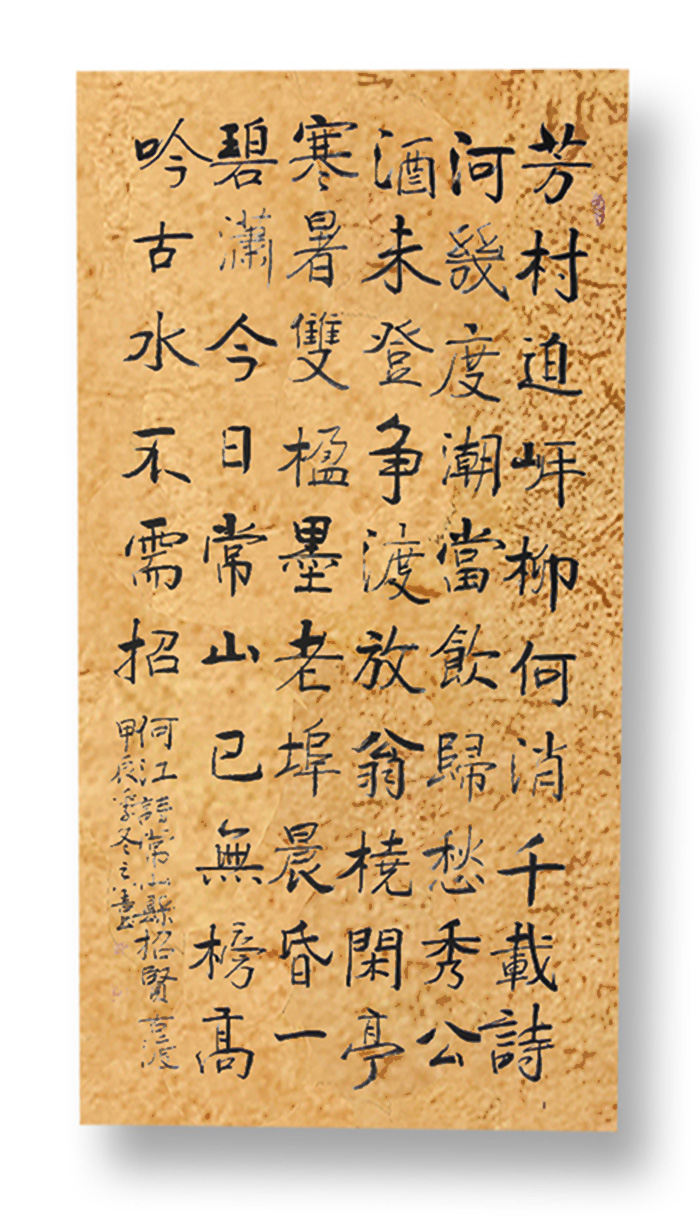 芳村迫岸柳何消千載詩
河幾度潮當飲歸愁秀公
酒未登争渡放翁橈閑亭
寒暑雙楹墨老埠晨昏一
碧瀟今日常山已無榜高
吟古水不需招
何江詩常山縣招賢古渡
甲辰季冬之